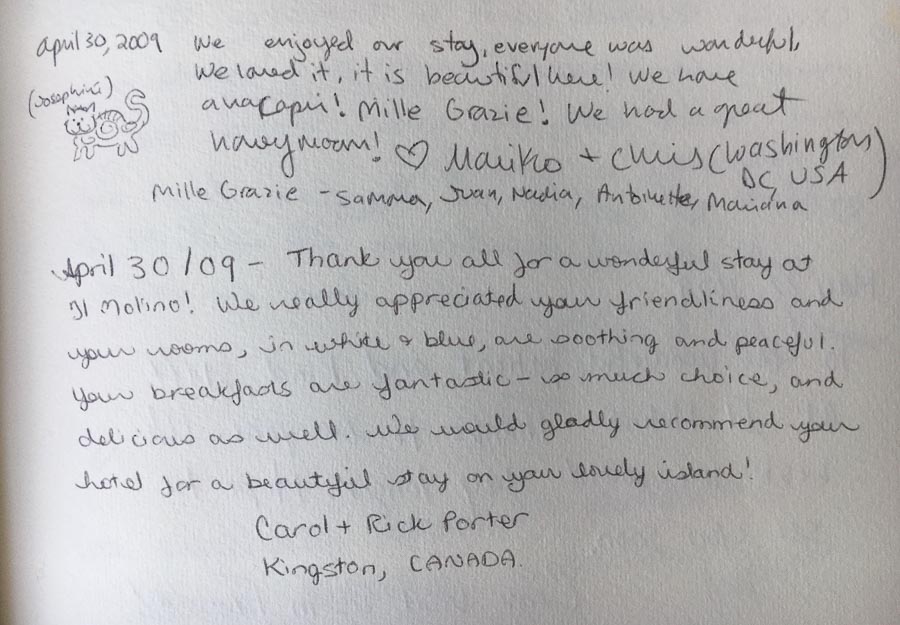 April 30, 2009 We enjoyed our stay, everyone was wonderful,
We loved it, it is beautiful here! We have
anacapri! Mille Grazie! We had a great
(Josephine)
honeymoon! ♡ Mariko + Chris (Washington
DC, USA)
Mille Grazie - Samma, Juan, Nadia, Antoinette, Mariana
April 30/09 - Thank you all for a wonderful stay at
Il Molino! We really appreciated your friendliness and
your rooms, in white & blue, are soothing and peaceful.
Your breakfasts are fantastic - so much choice, and
delicious as well. We would gladly recommend your
hotel for a beautiful stay on your lovely island!
Carol + Rick Porter
Kingston, CANADA.